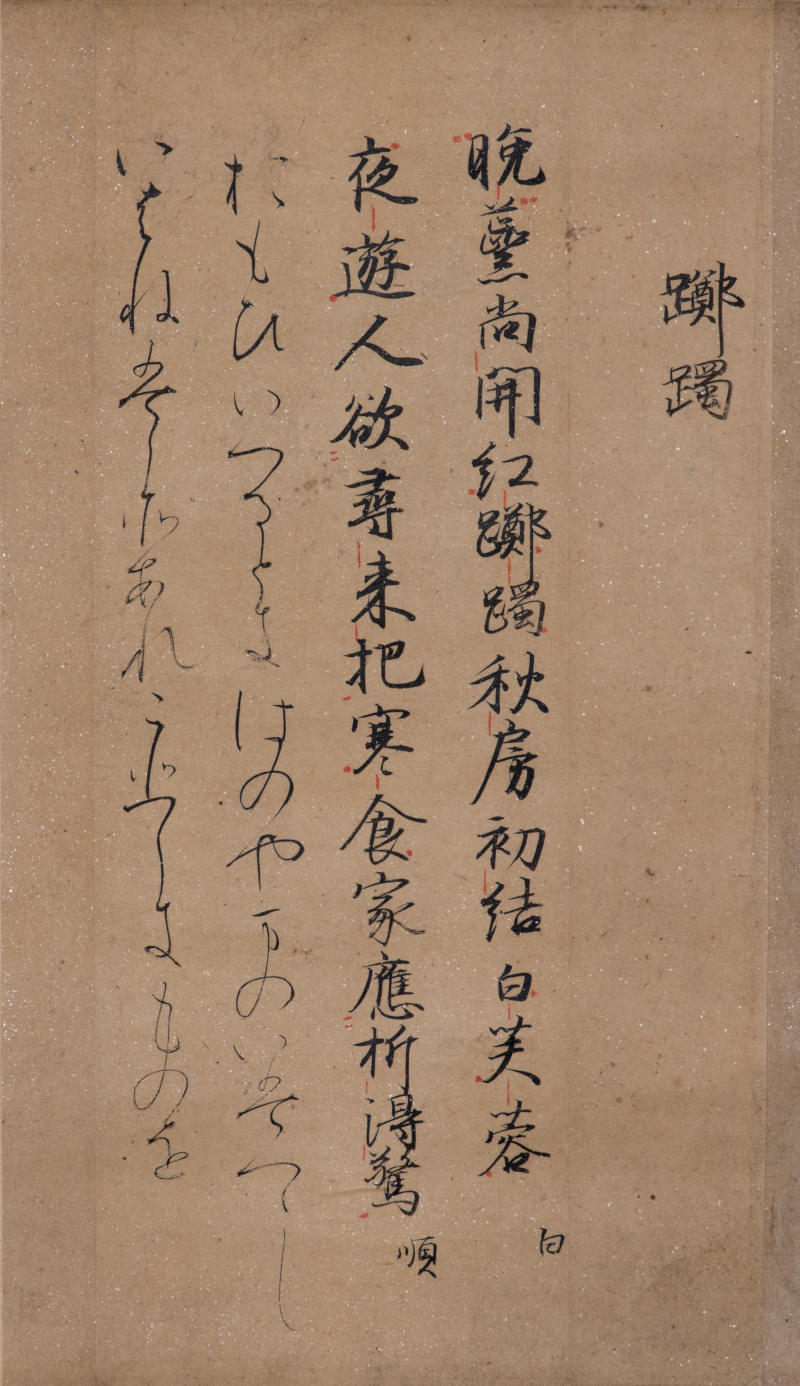 躑躅
晩蘂尚開紅躑躅秋房初結白芙蓉 白
夜遊人欲尋来把寒食家應折得驚 順
おもひいつるときはのやまのいはつゝし
いはねはこそあれこひしきものを